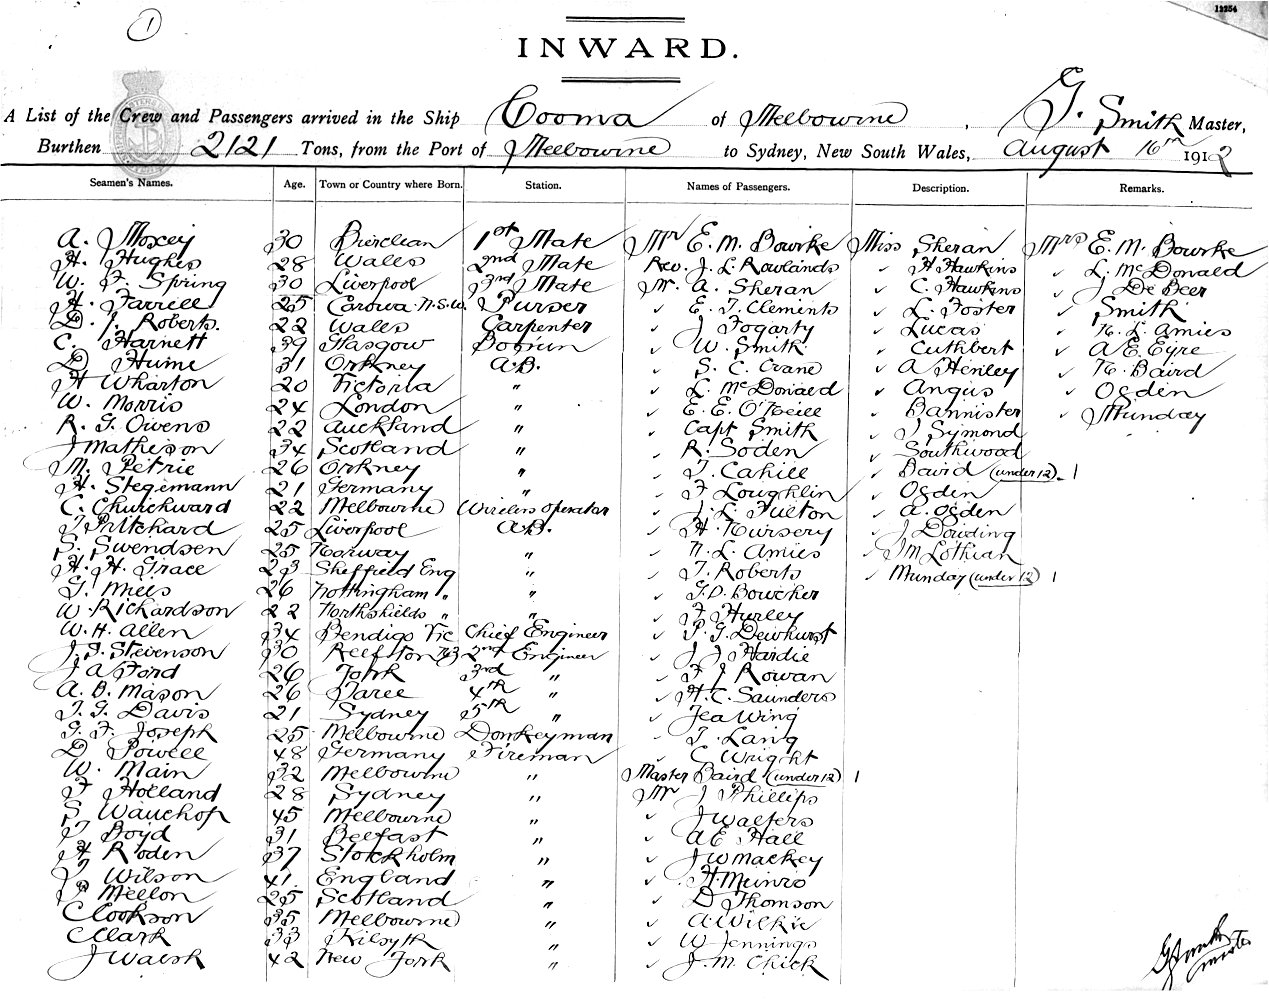 1
12254
INWARD.
A List of the Crew and Passengers arrived in the Ship Cooma of Melbourne, G. Smith Master,
Burthen 2121 Tons, from the Port of Melbourne to Sydney, New South Wales, August 16th 1912
Seamen's Names. Age. Town or Country where Born. Station. Names of Passengers. Description. Remarks.
A. Moxey 30 1st Mate Mr E. M. Bowrke Miss Sheran Mrs E. M. Bowrke
H. Hughes 28 Wales 2nd Mate Rev. J. L. Rowlands ✓ H Hawkins ✓ L. McDonald
W. F. Spring 30 Liverpool 3rd Mate Mr. A. Sheran ✓ C. Hawkins ✓ J De Beer
H. Farrell 25 Carowa N.S.W. Purser ✓ E. T. Clements ✓ L. Foster ✓ Smith
D. J. Roberts. 22 Wales Carpenter ✓ J Fogarty ✓ Lucas ✓ N. L. Amies
C. Harnett 39 Glasgow Bosun ✓ W. Smith ✓ Cuthbert ✓ A E. Eyre
D Hume 31 Orkney A.B. ✓ S. C. Crane ✓ A Henley ✓ N. Baird
H Wharton 20 Victoria " ✓ L. McDonald ✓ Angus ✓ Ogden
W. Morris 24 London " ✓ E. E. O'Neill ✓ Bannister ✓ Munday
R. G. Owens 22 Auckland " ✓ Capt Smith ✓ J Symond
J Mathieson 34 Scotland " ✓ R. Soden ✓ Southwood
M. Petrie 26 Orkney " ✓ T. Cahill ✓ David (under 12). 1
H. Stegemann 21 Germany " ✓ F Loughlin ✓ Ogden
C. Churchward 22 Melbourne Wireless operator ✓ J. L. Fulton ✓ A. Ogden
T Pritchard 25 Liverpool A.B. ✓ H. Nursery ✓ J Dowding
S. Swendsen 25 Norway " ✓ N. L. Amies ✓ J M Lothian
H. H. Grace 23 Sheffield Eng " ✓ T. Roberts ✓ Munday (under 12) 1
G. Mills 26 Nottingham " " ✓ G. D. Bowcher
W. Richardson 22 Northshields " " ✓ F Hurley
W. H. Allen 34 Bendigo Vic Chief Engineer ✓ P. G. Dewhurst
J. S. Stevenson 30 Reefton NZ 2nd Engineer ✓ J J Hardie
J A Ford 26 York 3rd " ✓ F J Rowan
A. B. Mason 26 Taree 4th " ✓ H. C. Saunders
T. G. Davis 21 Sydney 5th " ✓ Jea Wing
G. F. Joseph 25 Melbourne Donkeyman ✓ T. Lang
D Powell 48 Germany Fireman ✓ C Wright
W. Main 32 Melbourne " Master Baird (under 12) 1
F Holland 28 Sydney " Mr J Phillips
S Wauchop 45 Melbourne " ✓ J Walters
T Boyd 31 Belfast " ✓ A E Hall
H Roden 37 Stockholm " ✓ J W Mackey
T Wilson 41 England " ✓ H. Munro
P Mellon 25 Scotland " ✓ D Thomson
C Cookson 35 Melbourne " ✓ A. Wilkie
C Clark 33 Kilsyth " ✓ W Jennings
J Walsh 42 New York " ✓ J. M. Chick
G Smith
master